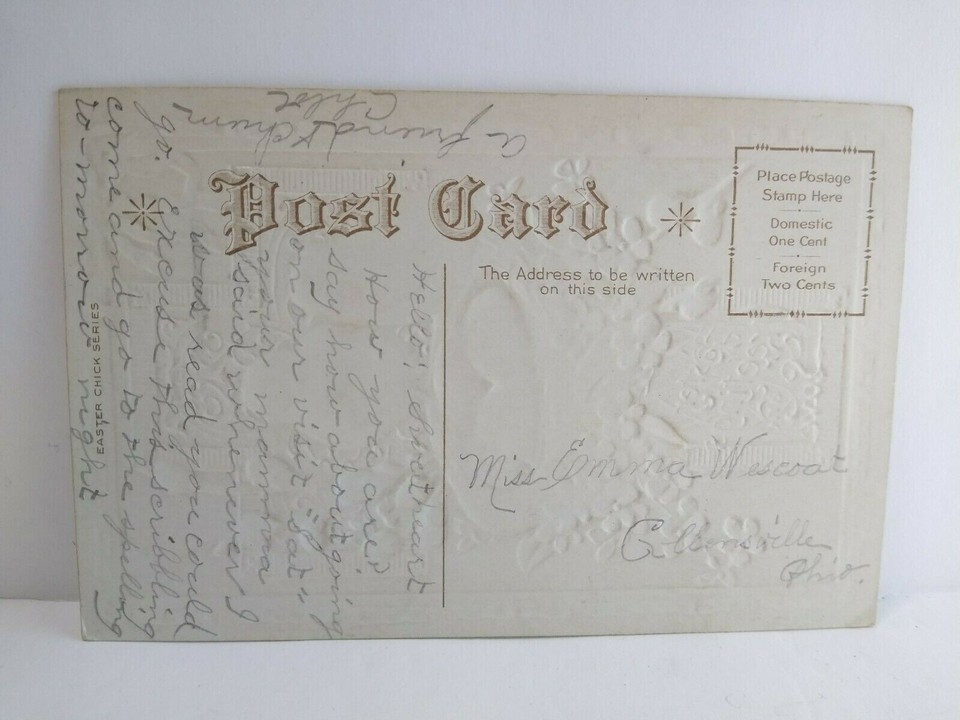 Post Card
Place Postage
Stamp Here
Domestic
One Cent
Foreign
Two Cents
The Address to be written
on this side
EASTER CHICK SERIES
Hello! Sweetheart
How you are?
say how about going
on our visit "Sat"
your mamma
said whenever I
was read you could
go. Excuse this scribbling
come and go to the spelling
to-morrow night
a friend & chum
Chloe
Miss Emma Wescoat
Collinsville
Ohio.